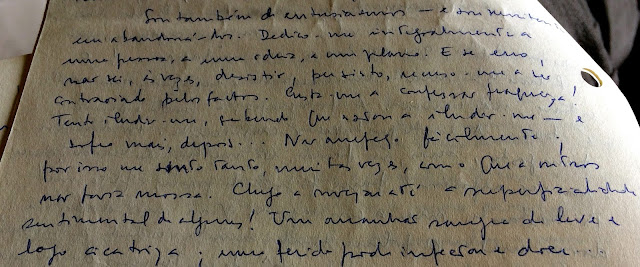 Sou também de entusiasmos — e sou renitente
em abandoná-los. Dedico-me integralmente a
uma pessoa, a uma ideia, a um plano. E se erro,
não sei, às vezes, desistir, persisto, recuso-me a ser
contrariado pelos factos. Custa-me a confessar fraqueza!
Tento iludir-me, sabendo que estou a iludir-me — e
sofro mais, depois... Não esqueço facilmente:
por isso me sinto tanto, muitas vezes, com o que a outros
não faria mossa. Chego a invejar até a superficialidade
sentimental de alguns! Um arranhão sangra de leve e
logo cicatriza; uma ferida pode infectar e doer....